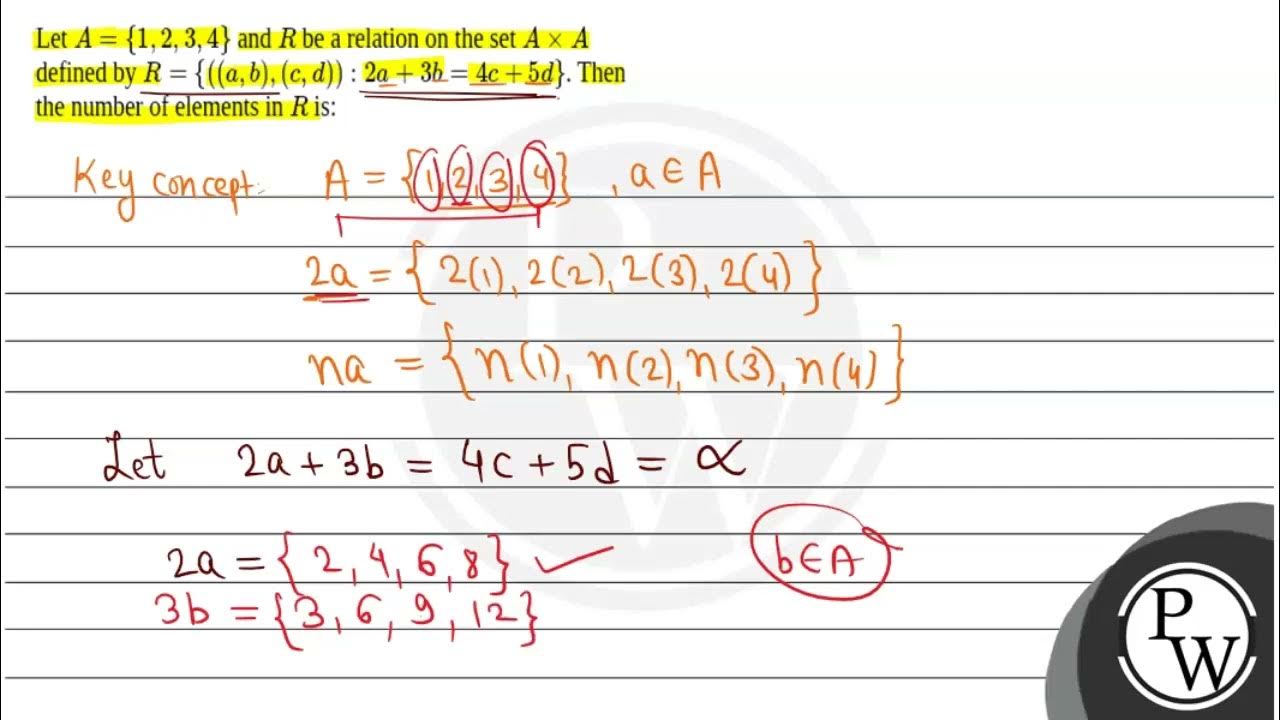 Let A = {1, 2, 3, 4} and R be a relation on the set A × A
defined by R = {((a, b), (c, d)) : 2a + 3b = 4c + 5d}. Then
the number of elements in R is:
Key concept: A = {1, 2, 3, 4} , a ∈ A
2a = { 2(1), 2(2), 2(3), 2(4) }
na = { n(1), n(2), n(3), n(4) }
Let 2a + 3b = 4c + 5d = ∝
2a = { 2, 4, 6, 8 } ✓ b∈A
3b = {3, 6, 9, 12}
P
W